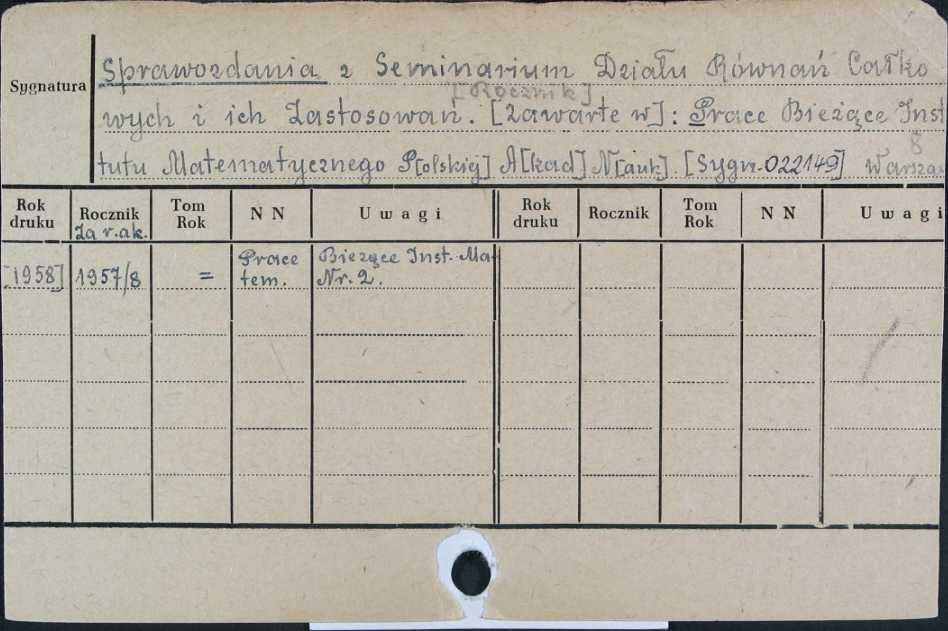 Sygnatura
Sprawozdania z Seminarium Działu Równań Całko
[Rocznik]
wych i ich Zastosowań. [Zawarte w]: Prace Bieżące Inst
8
tutu Matematycznego P[olskiej] A[kad] N[auk]. [Sygn. 022149] Warszaw
Rok druku Rocznik Tom Rok N N Uwagi Rok druku Rocznik Tom Rok N N Uwagi
Za r. ak.
[1958] 1957/8 = Prace Bieżące Inst. Ma
tem. Nr. 2.